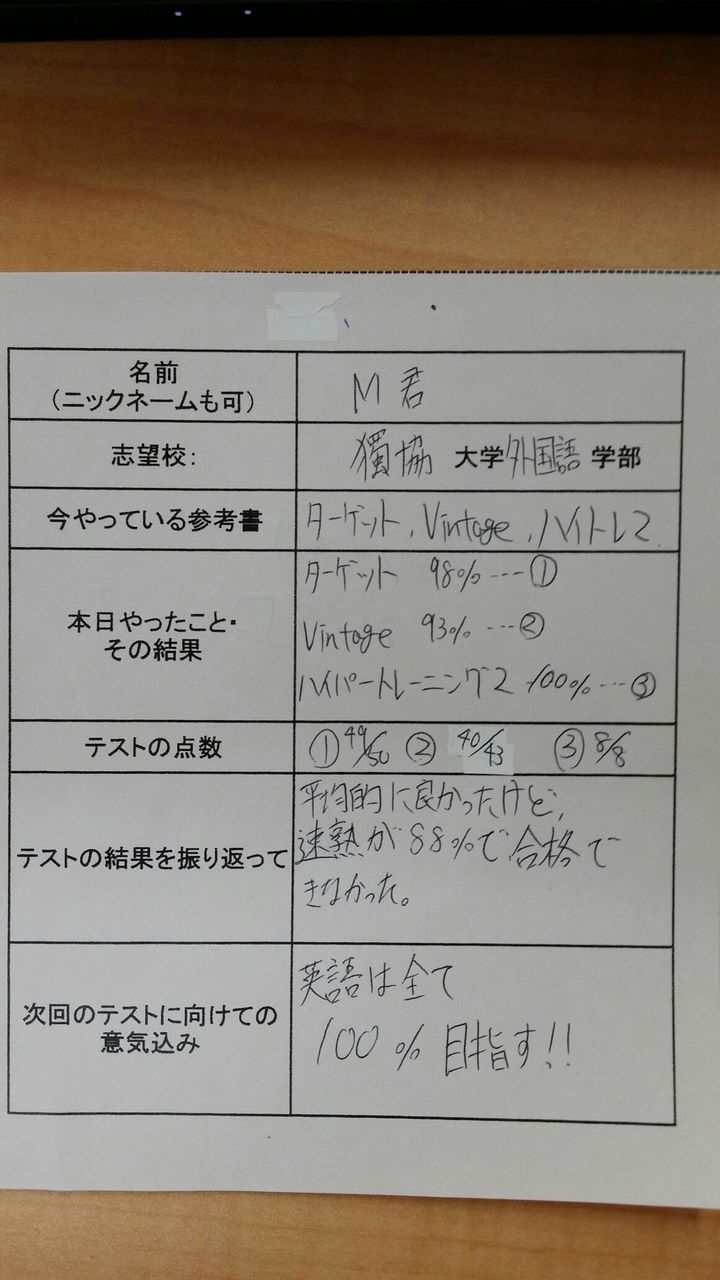 名前
(ニックネームも可)
M君
志望校:
獨協 大学 外国語 学部
今やっている参考書
ターゲット、Vintage、ハイトレ2
本日やったこと・
その結果
ターゲット 98%…①
Vintage 93%…②
ハイパートレーニング2 100%…③
テストの点数
① 49/50 ② 40/43 ③ 8/8
テストの結果を振り返って
平均的に良かったけど、
速熟が88%で合格で
きなかった。
次回のテストに向けての
意気込み
英語は全て
100%目指す!!